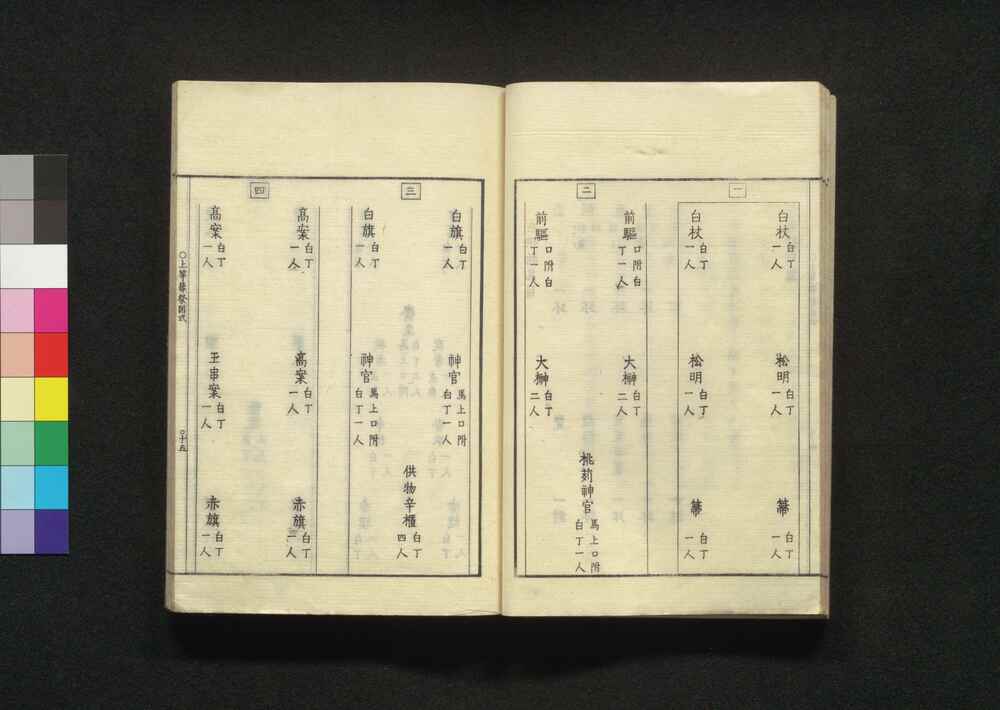 一
白杖 白丁一人
松明 白丁一人
箒 白丁一人
白杖 白丁一人
松明 白丁一人
箒 白丁一人
二
前驅 口附白丁一人
大榊 白丁二人
桃莿神官 馬上口附白丁一人
前驅 口附白丁一人
大榊 白丁二人
三
白旗 白丁一人
神官 馬上口附白丁一人
供物辛櫃 白丁四人
白旗 白丁一人
神官 馬上口附白丁一人
四
髙案 白丁一人
髙案 白丁一人
赤旗 白丁一人
髙案 白丁一人
玉串案 白丁一人
赤旗 白丁一人
○上等葬祭圖式
○十五